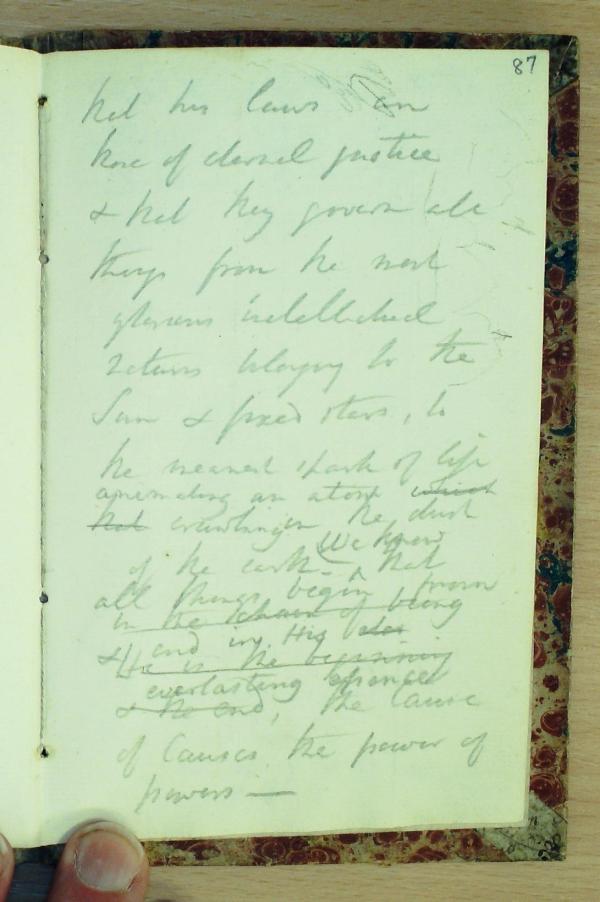 87
that his laws are
those of eternal justice
& that they govern all
things from the most
glorious intellectual
natures belonging to the
Sun & fixed stars, to
the meanest spark of life
animating an atom which
that crawling in the dust
We know
of the earth - that
all things begin from
in the chain of being
& end in His
He is the beginning
everlasting essence
& the end, the Cause
of Causes, the power of
powers —